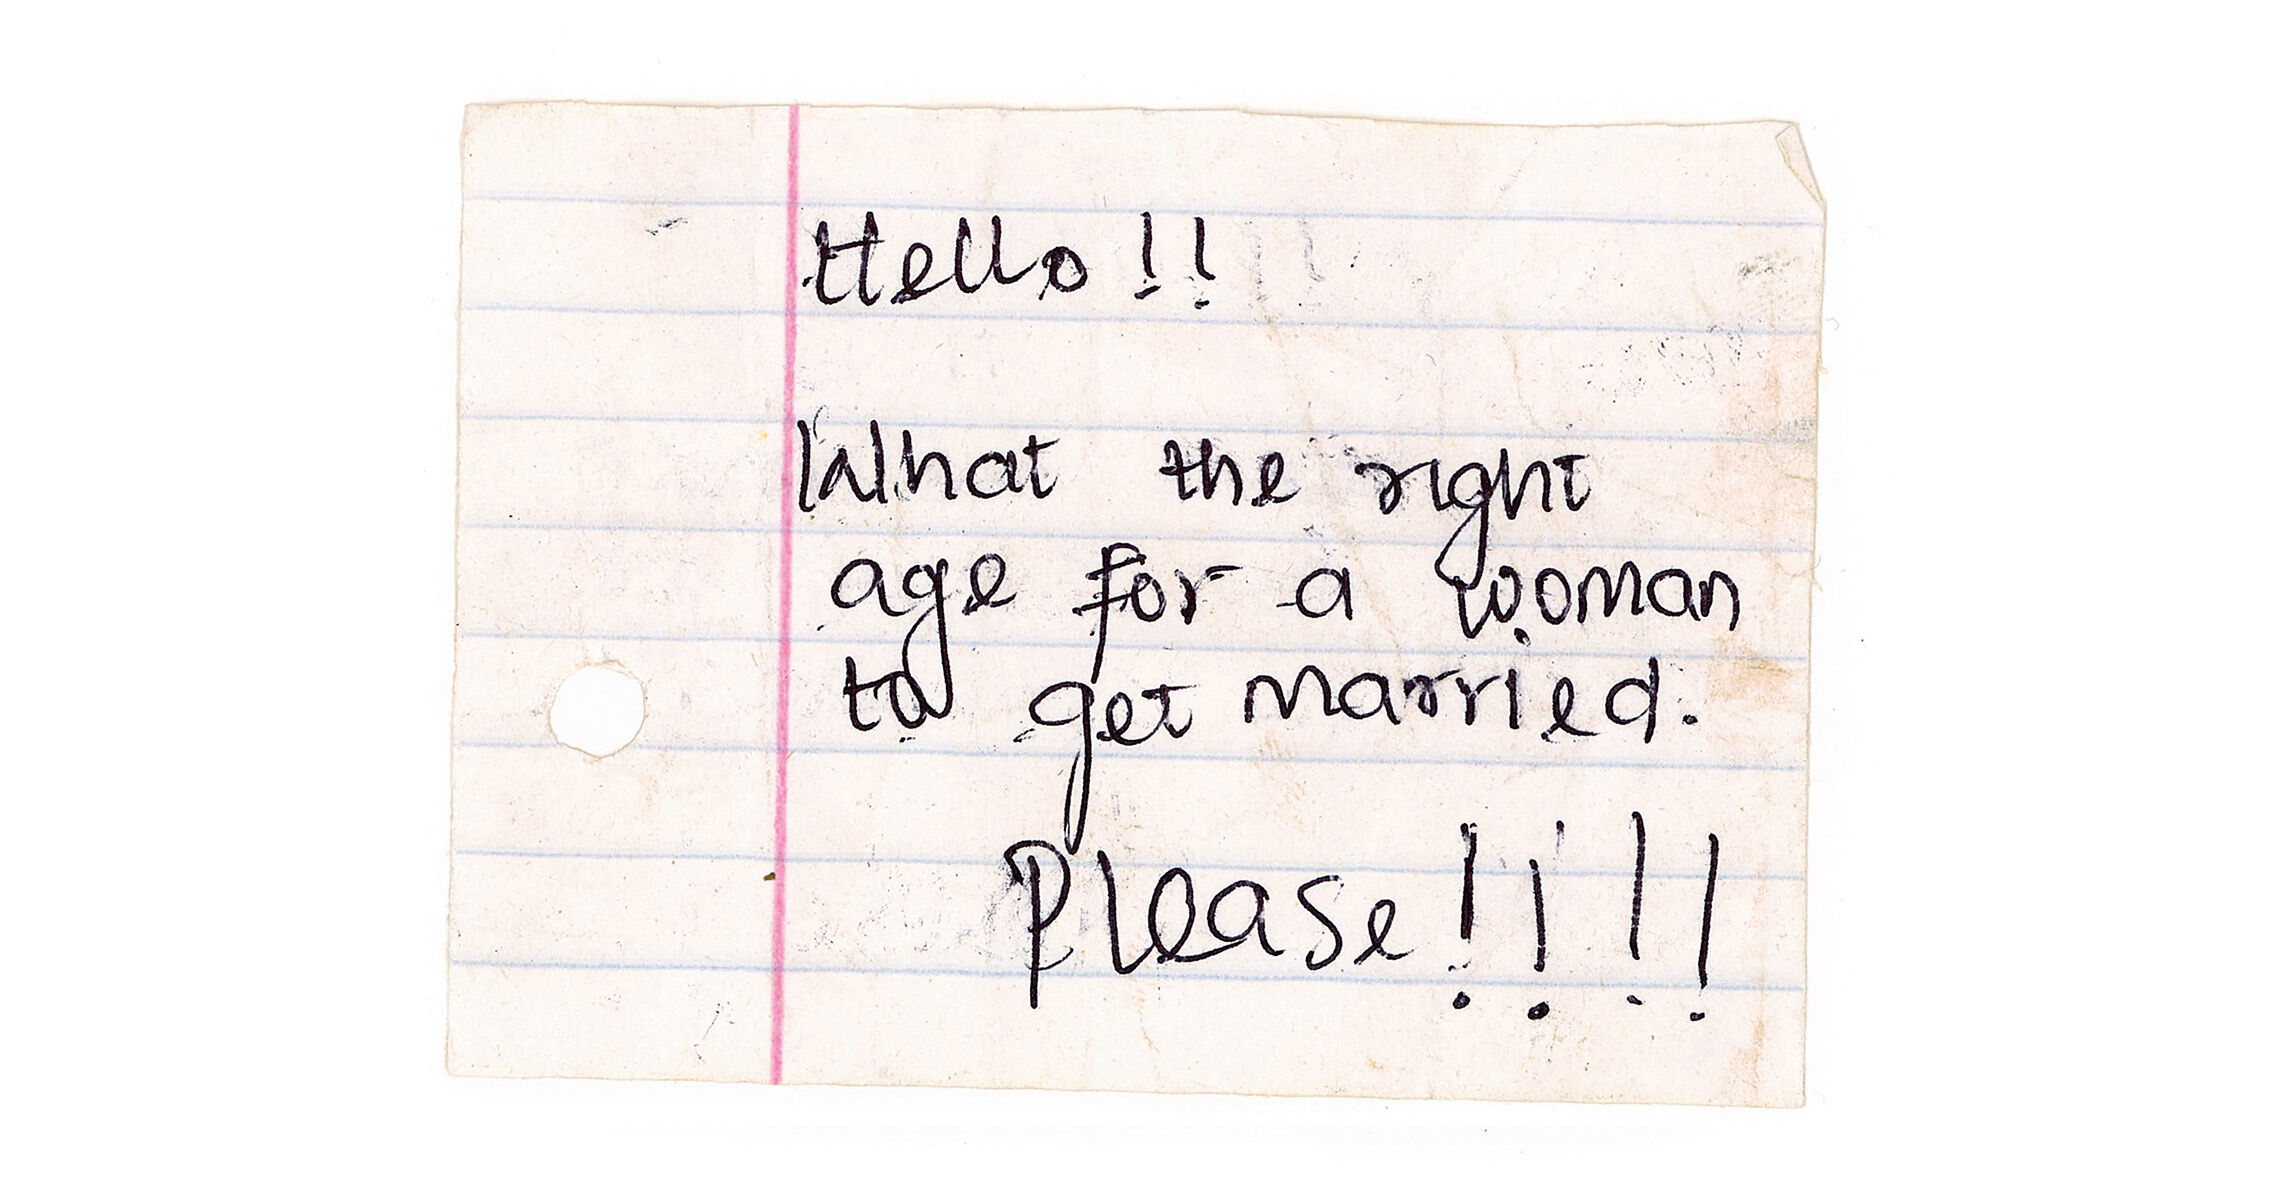 Hello!!
What the right
age for a woman
to get married.
Please!!!!